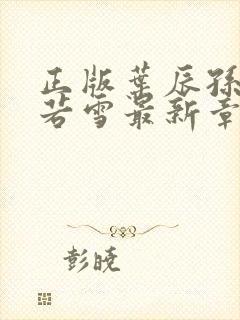 正版葉辰孫
若雪最新章
彭曉